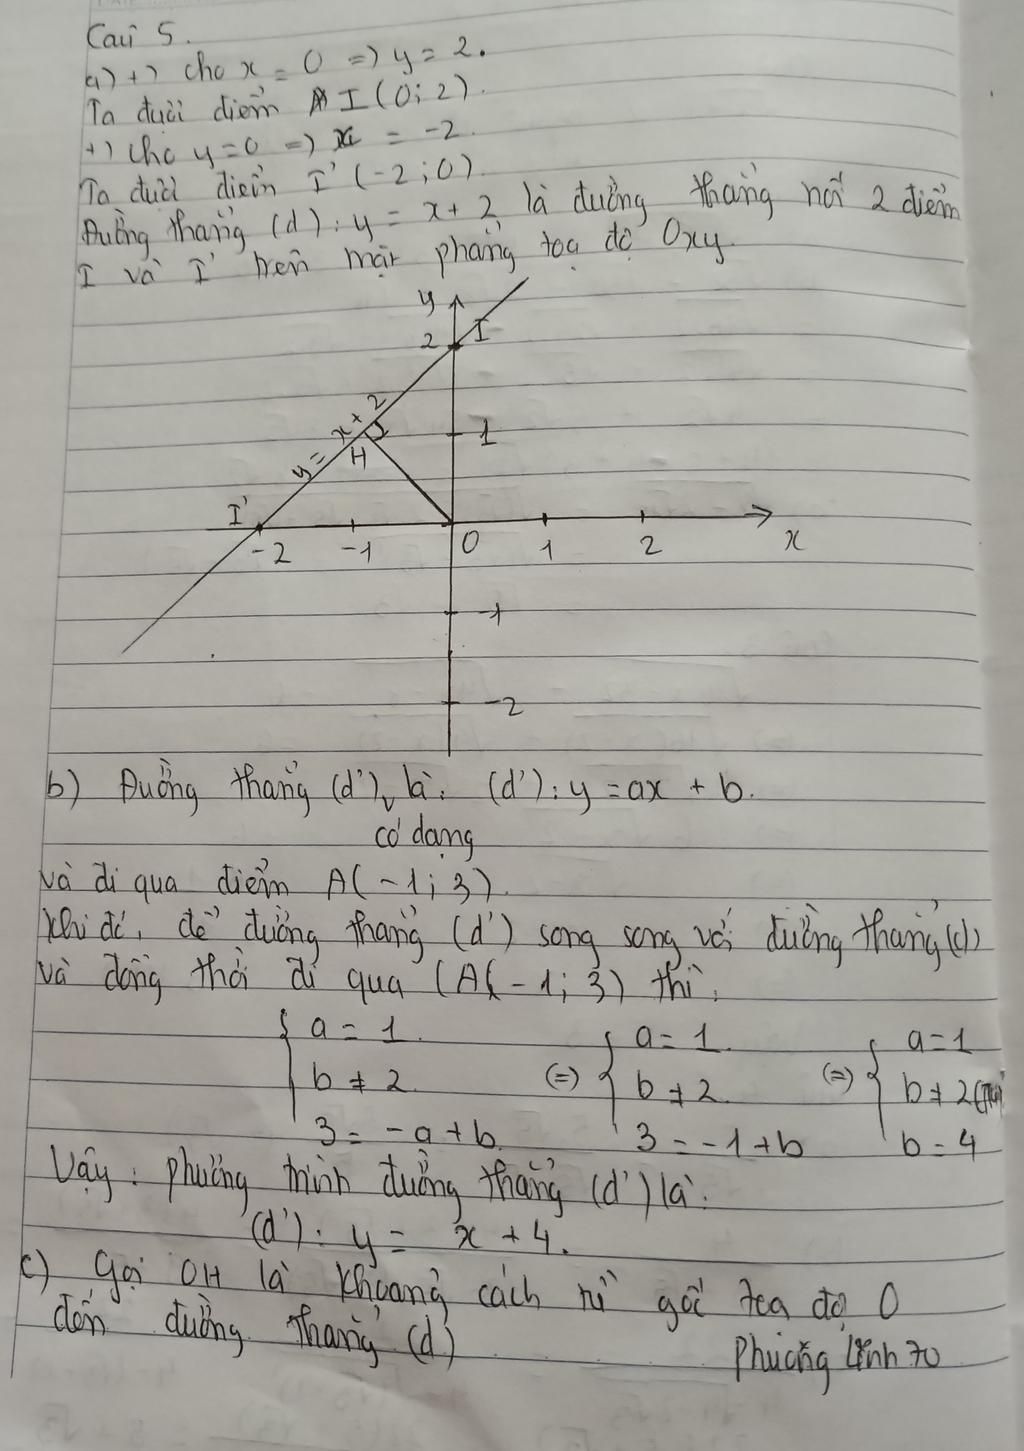 Câu 5.
a) +) cho x = 0 => y = 2.
Ta được điểm I (0; 2).
+) cho y = 0 => x = -2.
Ta được điểm I' (-2; 0).
Đường thẳng (d): y = x + 2 là đường thẳng nối 2 điểm
I và I' trên mặt phẳng tọa độ Oxy.
y
2 I
y = x + 2
1
H
I'
-2 -1 O 1 2 x
-1
-2
b) Đường thẳng (d') có dạng là: (d'): y = ax + b.
và đi qua điểm A(-1; 3).
Khi đó, để đường thẳng (d') song song với đường thẳng (d)
và đồng thời đi qua (A(-1; 3) thì:
{ a = 1. (=) { a = 1. (=) { a = 1
b ≠ 2. b ≠ 2. b ≠ 2
3 = -a + b. 3 = -1 + b b = 4
Vậy: phương trình đường thẳng (d') là:
(d'): y = x + 4.
c) Gọi OH là khoảng cách từ gốc tọa độ O
đến đường thẳng (d)
Phương Linh 70